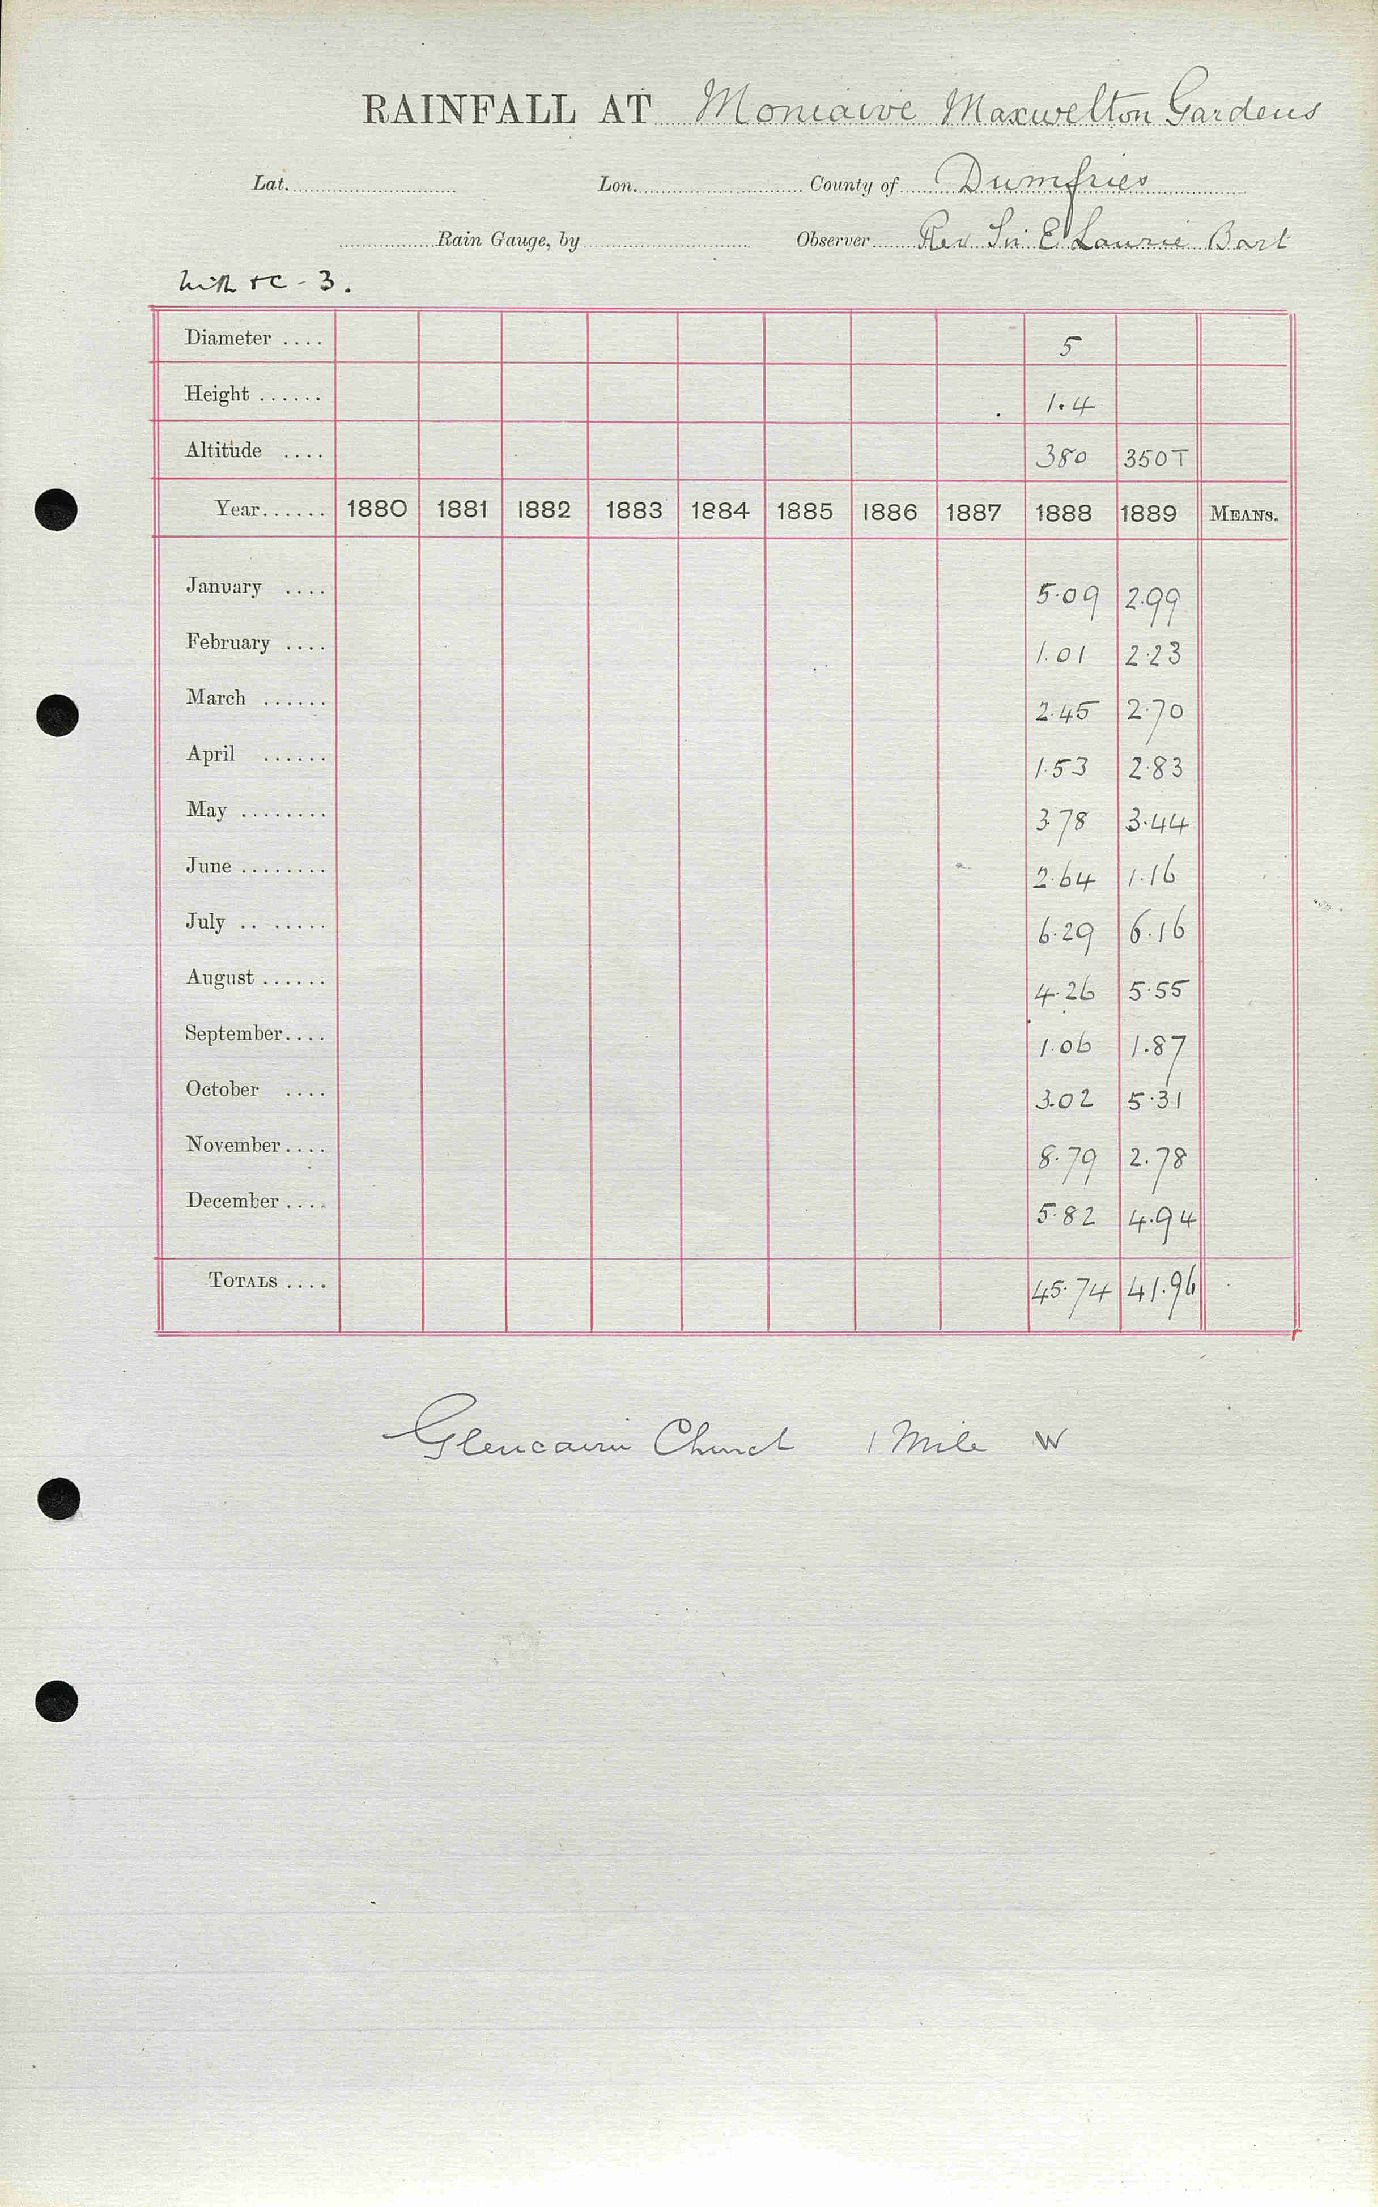 RAINFALL AT Moniaive Maxwelton Gardens
Lat. Lon. County of Dumfries
Rain Gauge, by Observer Rev Sir E Laurie Bart
3.
Diameter .... 5
Height ...... 1.4
Altitude .... 380 350T
Year...... 1880 1881 1882 1883 1884 1885 1886 1887 1888 1889 MEANS.
January .... 5.09 2.99
February .... 1.01 2.23
March ...... 2.45 2.70
April ...... 1.53 2.83
May ........ 3.78 3.44
June ........ 2.64 1.16
July .. ..... 6.29 6.16
August ...... 4.26 5.55
September.... 1.06 1.87
October .... 3.02 5.31
November.... 8.79 2.78
December .... 5.82 4.94
TOTALS .... 45.74 41.96
Glencairn Church 1 Mile W